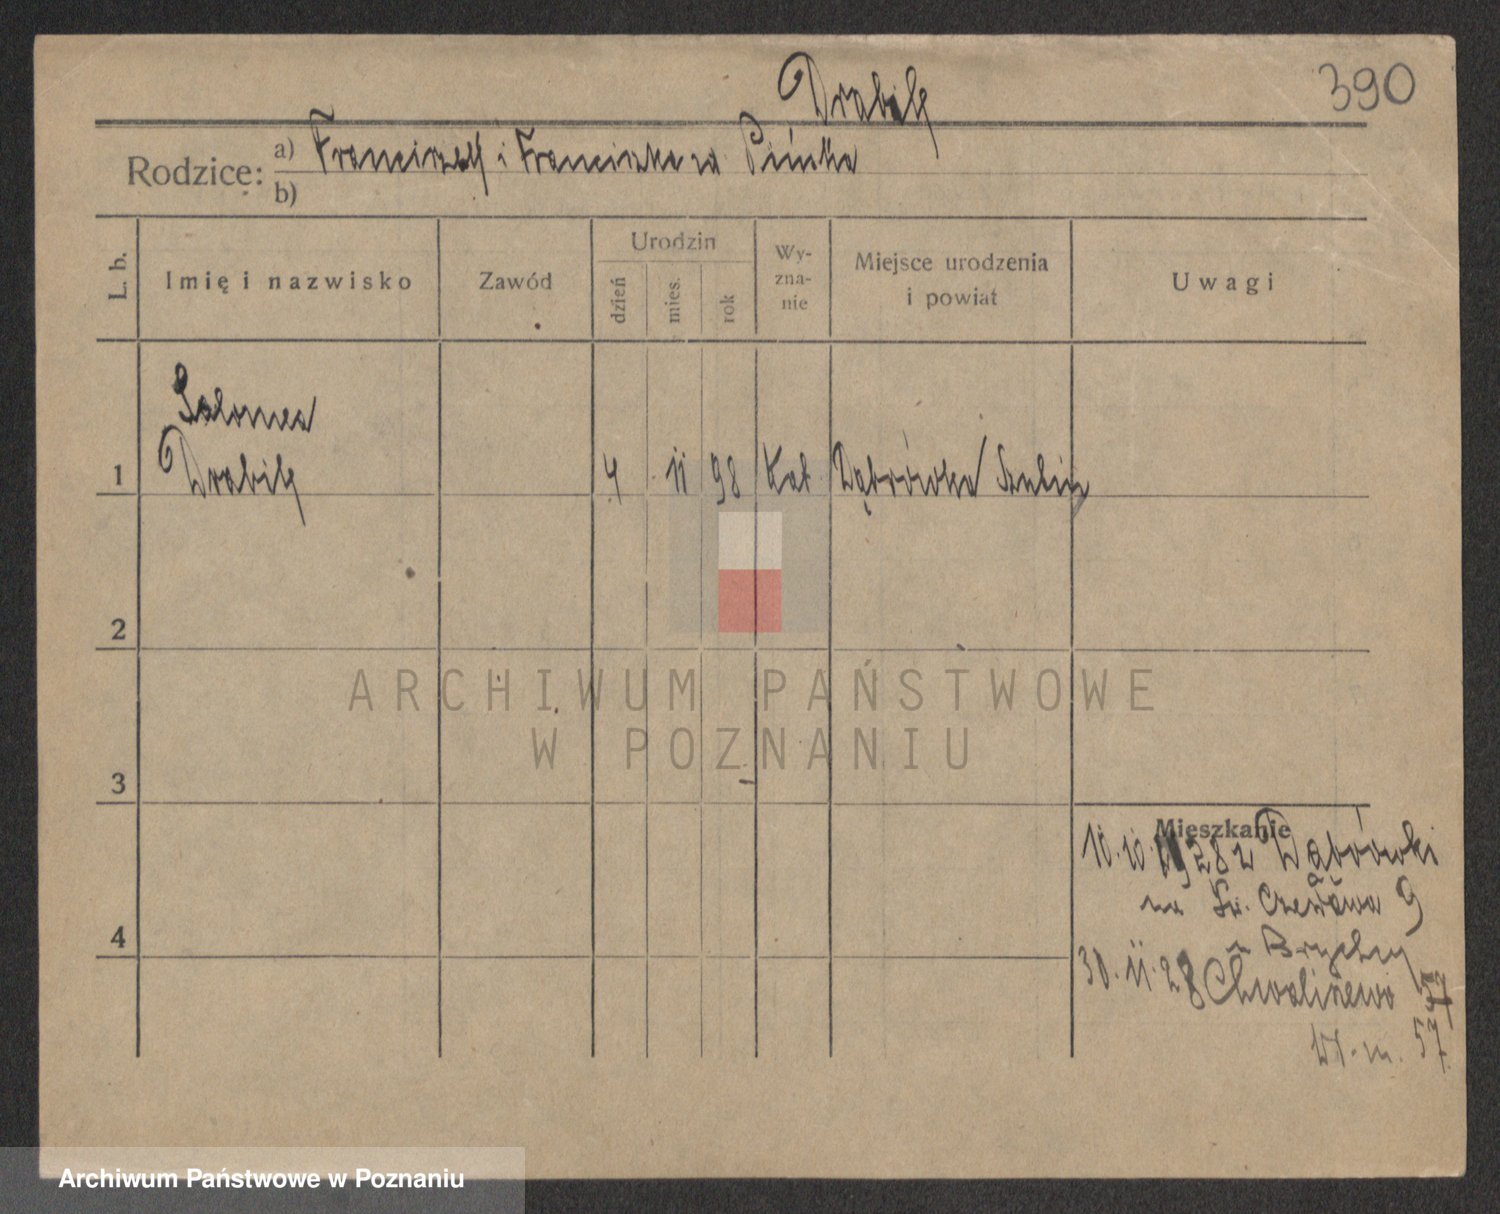 390
Drabik
Rodzice:
a) Franciszek i Franciszka za
b)
L. b.
Imię i nazwisko
Zawód
Urodzin
dzień
mies.
rok
Wy-
zna-
nie
Miejsce urodzenia
i powiat
Uwagi
Salomea
1 Drabik 4 11 98 Kat Dąbrówka Szubin
2
ARCHIWUM PAŃSTWOWE
W POZNANIU
3
Mieszkanie
10.10.1928 z Dąbrówki
na Św. 9
4
30.11.28 57
57
Archiwum Państwowe w Poznaniu